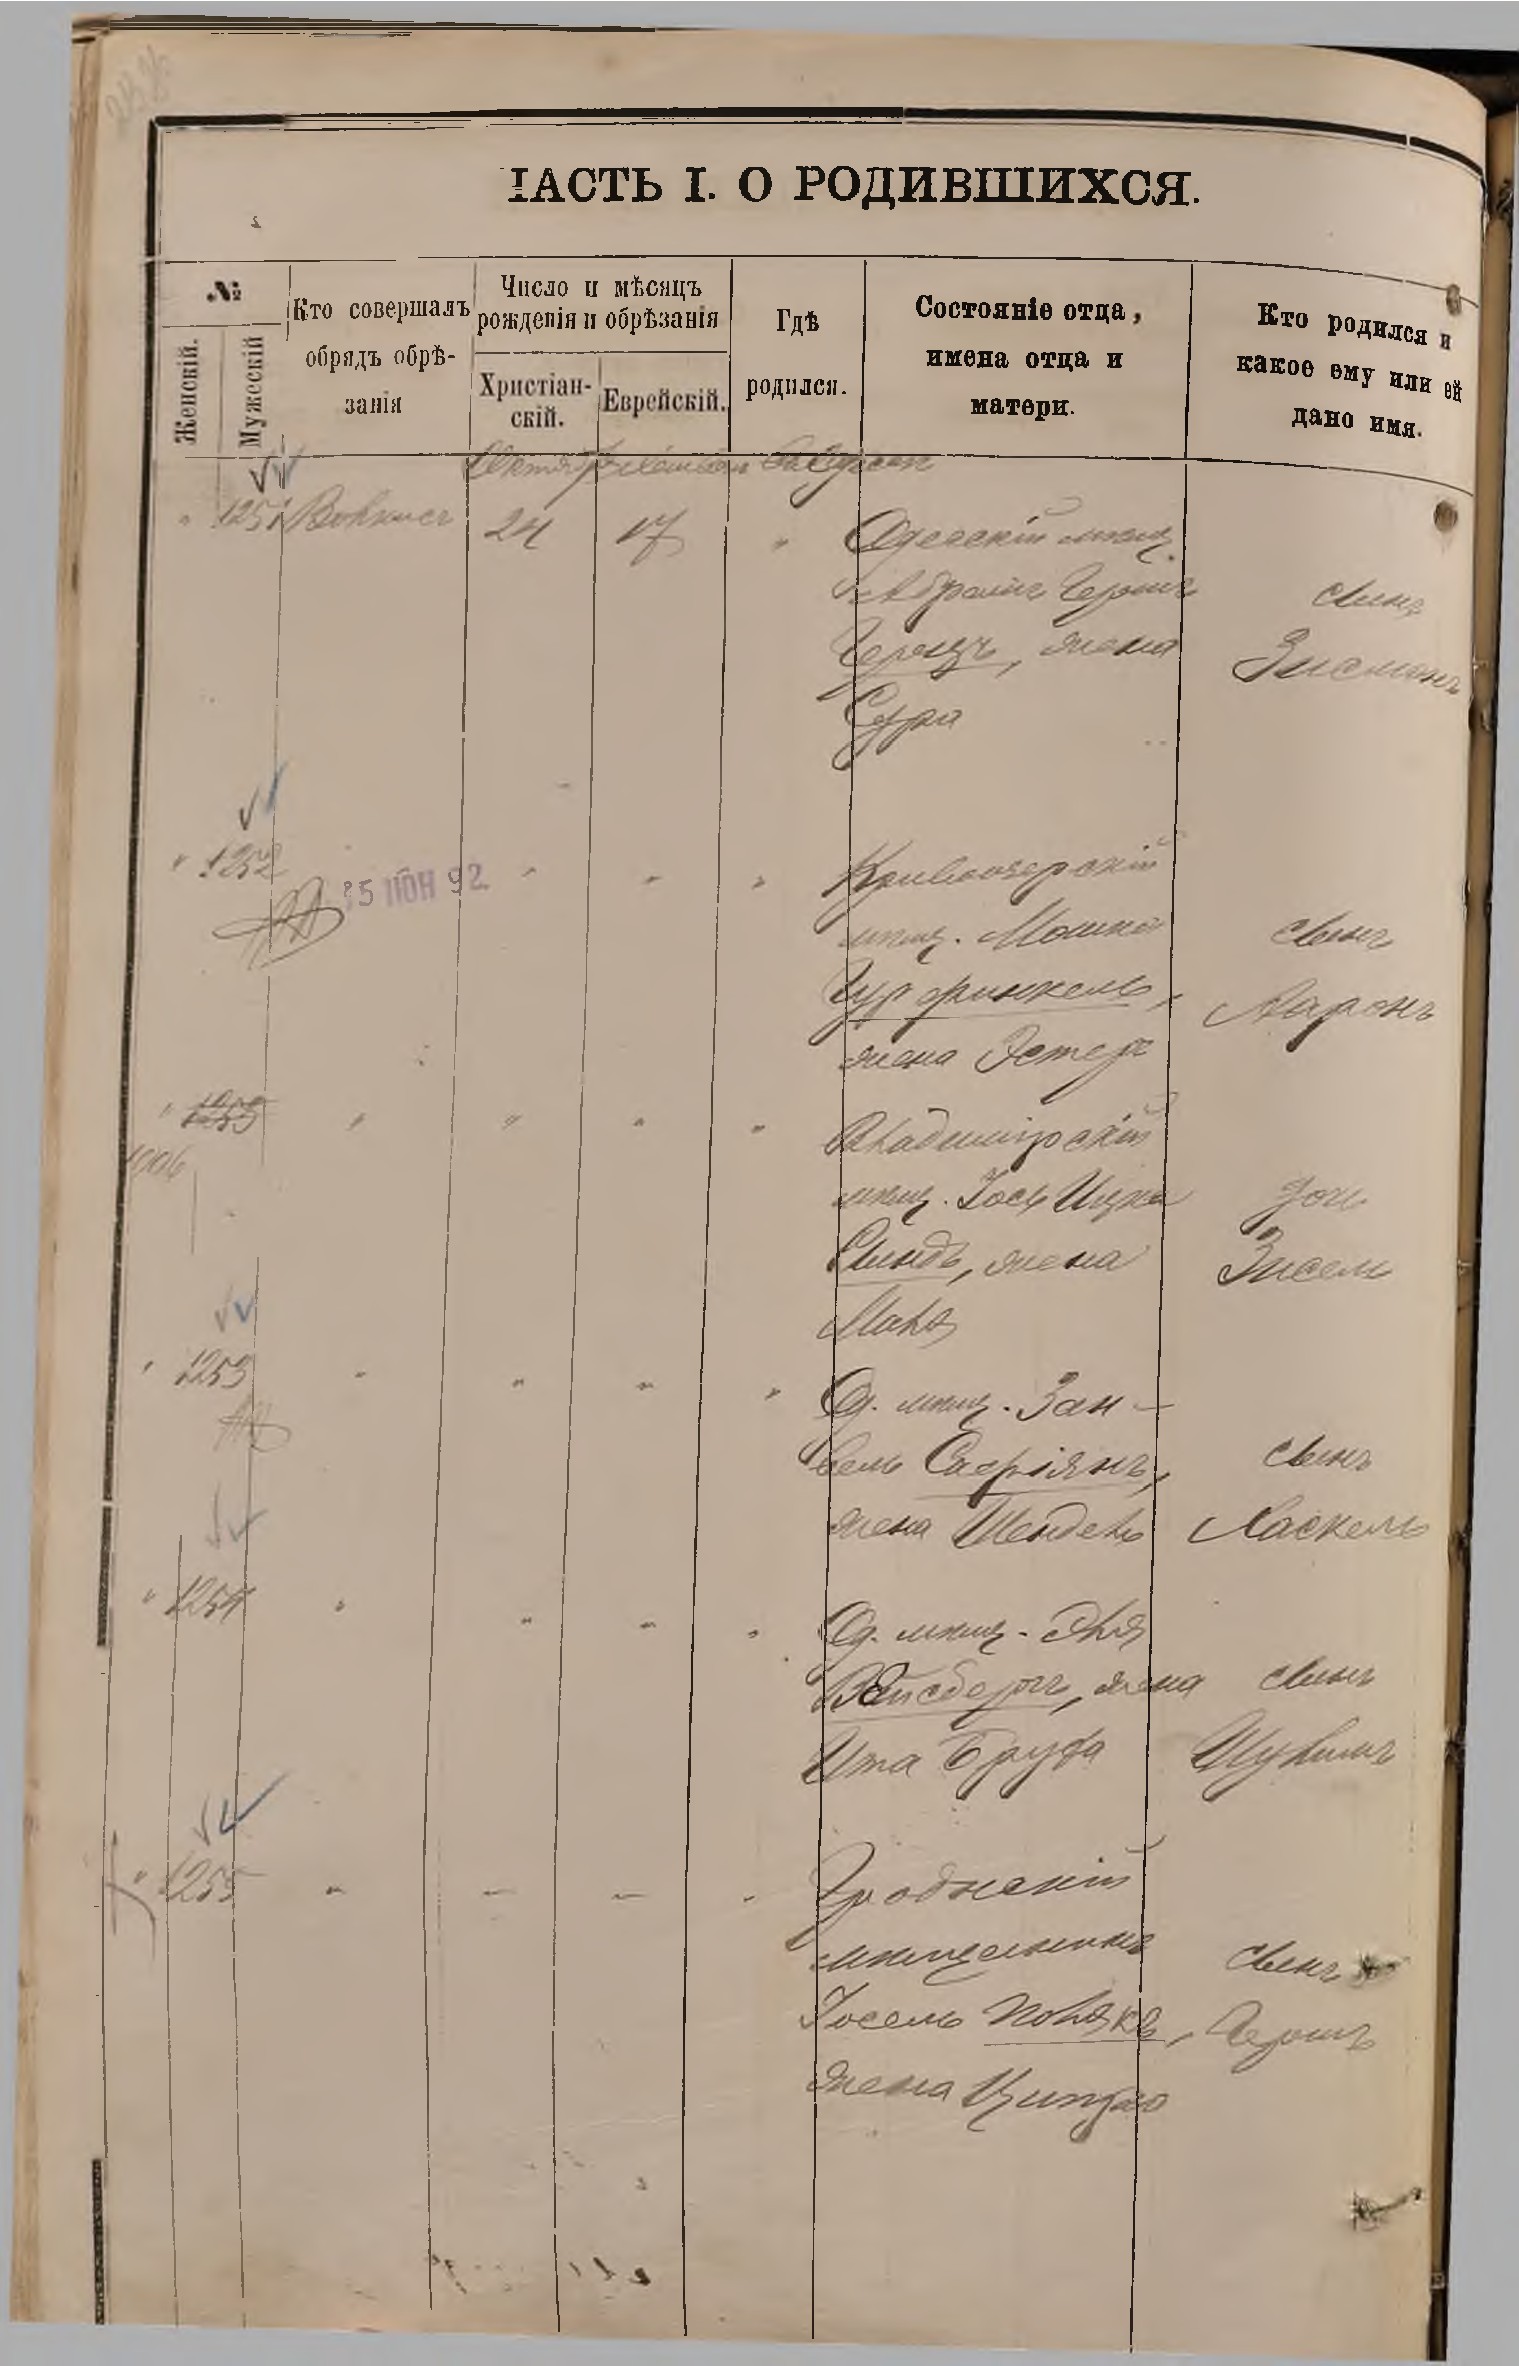 ЧАСТЬ I. О РОДИВШИХСЯ.
№
Женскій.
Мужескій
Кто совершалъ
обрядъ обрѣ-
занія
Число и мѣсяцъ
рожденія и обрѣзанія
Христіан-
скій.
Еврейскій.
Гдѣ
родился.
Состояніе отца,
имена отца и
матери.
Кто родился и
какое ему или ей
дано имя.
" 1251 24 17 " Одесскій мѣщ.
Абрамъ Гершъ
Герцъ, жена
Сура
сынъ
Зисманъ
" 1252 25 ІЮН 92 " " " Кривоозерскій
мѣщ. Мошко
Гурфинкель,
жена Эстеръ
сынъ
Ааронъ
" 1253 " " " " Владимірскій
1906
мѣщ. Іось Ицко
жена
Маля
дочь
Зисель
" 1253 " " " " Од. мѣщ. Зан-
вель Сафріянъ,
жена Шендель
сынъ
Хаскель
" 1254 " " " " Од. мѣщ. Эля
Вейсбергъ, жена
Ита Бруха
сынъ
Шулимъ
" 1255 " " " " Гродненскій
мѣщанинъ
Іосель Полякъ,
жена Ципра
сынъ
Гершъ